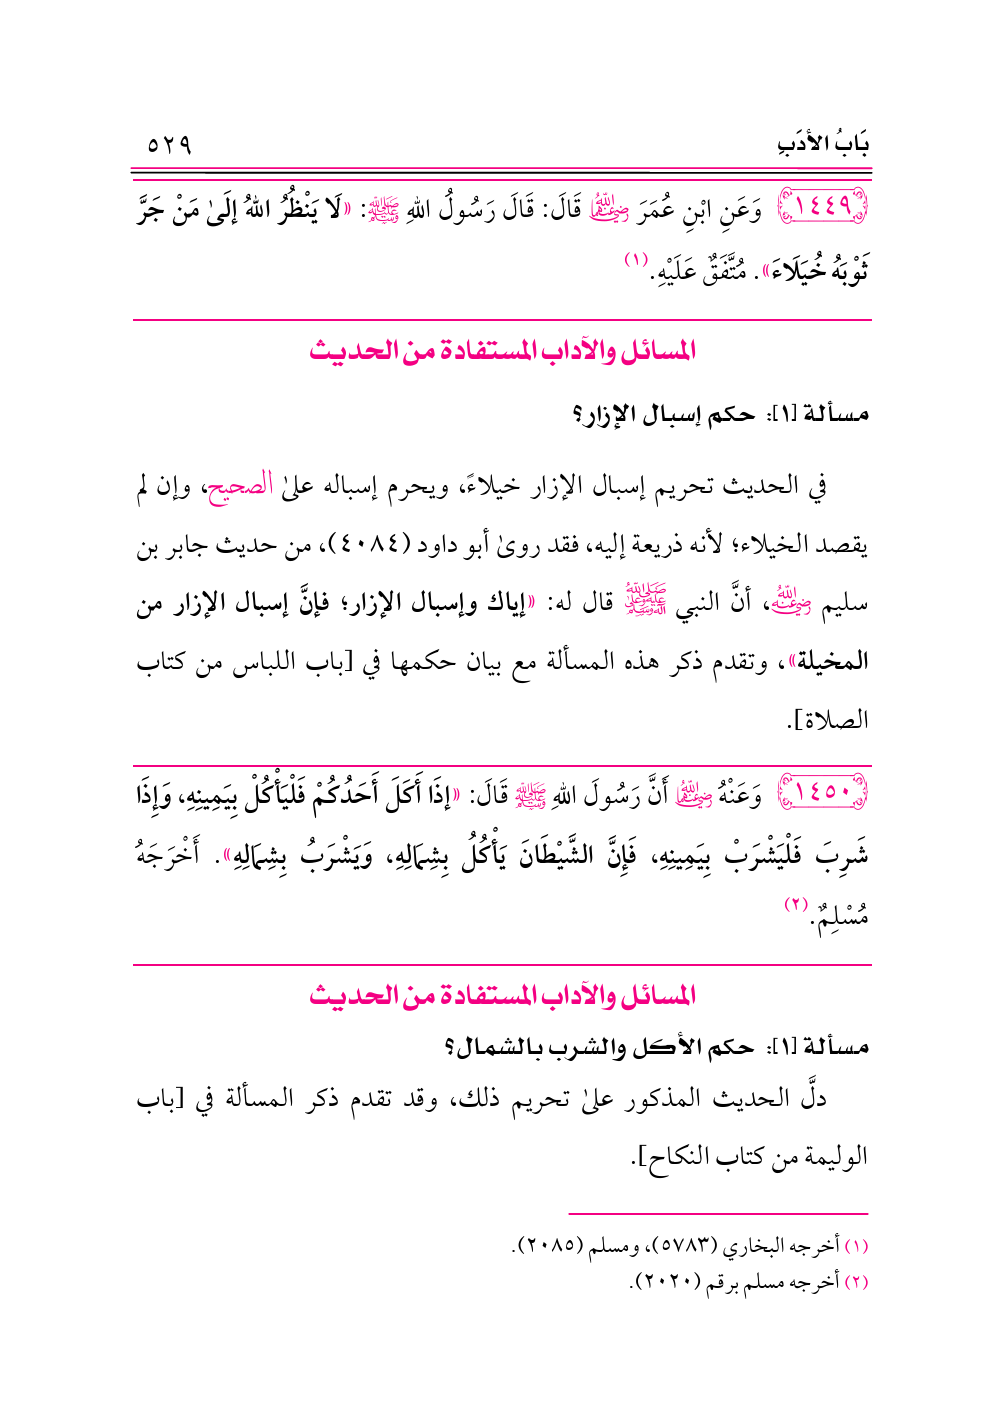 بَابُ الأدَبِ
٥٢٩
﴿١٤٤٩﴾ وَعَنِ ابْنِ عُمَرَ رضي الله عنهما قَالَ: قَالَ رَسُولُ اللهِ ﷺ: «لَا يَنْظُرُ اللهُ إلَىٰ مَنْ جَرَّ
ثَوْبَهُ خُيَلَاءَ». مُتَّفَقٌ عَلَيْهِ.(١)
المسائل والآداب المستفادة من الحديث
مسألة [١]: حكم إسبال الإزار؟
في الحديث تحريم إسبال الإزار خيلاءً، ويحرم إسباله علىٰ الصحيح، وإن لم
يقصد الخيلاء؛ لأنه ذريعة إليه، فقد روىٰ أبو داود (٤٠٨٤)، من حديث جابر بن
سليم رضي الله عنه، أنَّ النبي ﷺ قال له: «إياك وإسبال الإزار؛ فإنَّ إسبال الإزار من
المخيلة»، وتقدم ذكر هذه المسألة مع بيان حكمها في [باب اللباس من كتاب
الصلاة].
﴿١٤٥٠﴾ وَعَنْهُ رضي الله عنهما أَنَّ رَسُولَ اللهِ ﷺ قَالَ: «إذَا أَكَلَ أَحَدُكُمْ فَلْيَأْكُلْ بِيَمِينِهِ، وَإِذَا
شَرِبَ فَلْيَشْرَبْ بِيَمِينِهِ، فَإِنَّ الشَّيْطَانَ يَأْكُلُ بِشِمَالِهِ، وَيَشْرَبُ بِشِمَالِهِ». أَخْرَجَهُ
مُسْلِمٌ.(٢)
المسائل والآداب المستفادة من الحديث
مسألة [١]: حكم الأكل والشرب بالشمال؟
دلَّ الحديث المذكور علىٰ تحريم ذلك، وقد تقدم ذكر المسألة في [باب
الوليمة من كتاب النكاح].
(١) أخرجه البخاري (٥٧٨٣)، ومسلم (٢٠٨٥).
(٢) أخرجه مسلم برقم (٢٠٢٠).